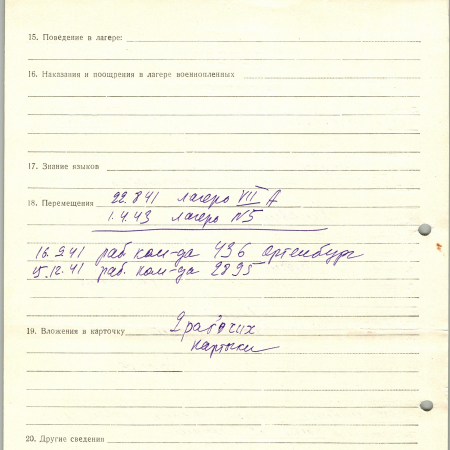 15. Поведение в лагере:
16. Наказания и поощрения в лагере военнопленных
17. Знание языков
18. Перемещения 22.8 41 лагерь VII A
1.4.43 лагерь №5
16.9.41 раб ком-да 436 Ортенбург
15.12.41 раб. ком-да 2895
19. Вложения в карточку 2 рабочих
карточки
20. Другие сведения